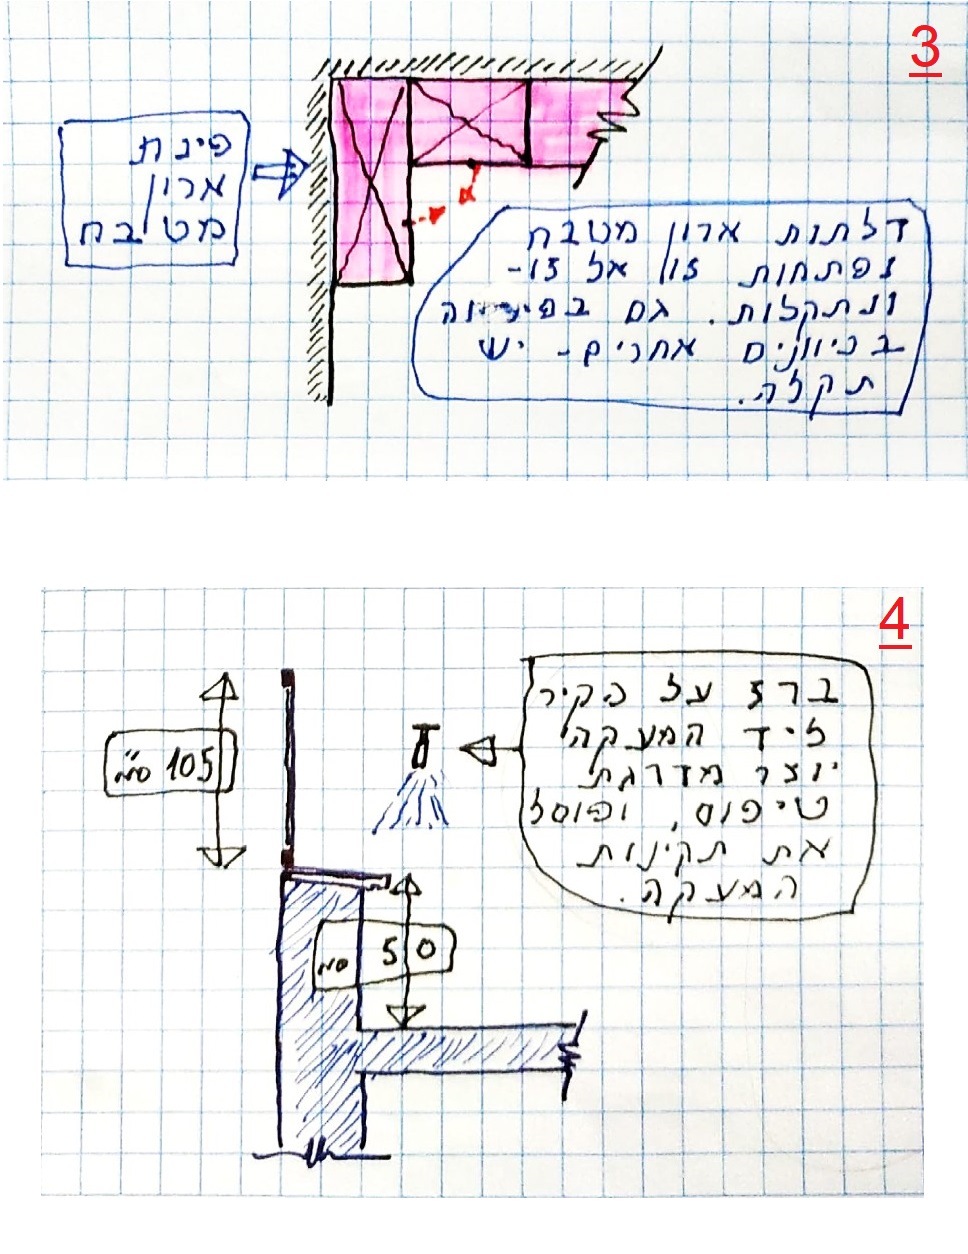 3
פינת
ארון
מטבח
דלתות ארון מטבח
נפתחות זו אל זו-
ונתקלות. גם בפיתוח
בכיוונים אחרים - יש
תקלה.
4
ברז על הקיר
ליד המעקה
יוצר מדרגת
טיפוס, ופוסל
את תקינות
המעקה.
105 ס"מ
50 ס"מ